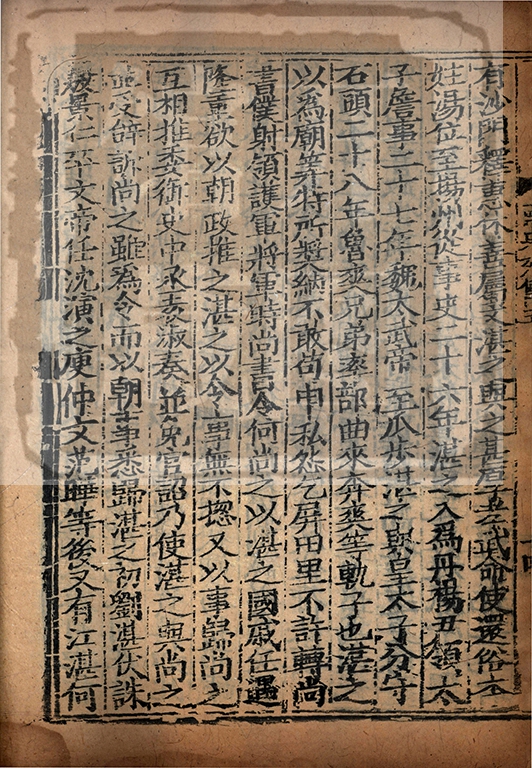 有沙門釋惠休善屬文湛之與之甚厚孝武命使還俗本
姓湯位至揚州從事史二十六年湛之入爲丹楊尹領太
子詹事二十七年魏太武帝至瓜步湛之與皇太子分守
石頭二十八年魯爽兄弟率部曲來奔爽等軌子也湛之
以爲廟筭特所奬納不敢苟申私怨乞屏田里不許轉尚
書僕射領護軍將軍時尚書令何尚之以湛之國戚任遇
隆重欲以朝政推之湛之以令事無不揔又以事歸尚之
互相推委御史中丞袁淑奏並免官詔乃使湛之與尚之
並受辭訴尚之雖爲令而以朝事悉歸湛之初劉湛伏誅
殷景仁卒文帝任沈演之庾仲文范曄等後又有江湛何